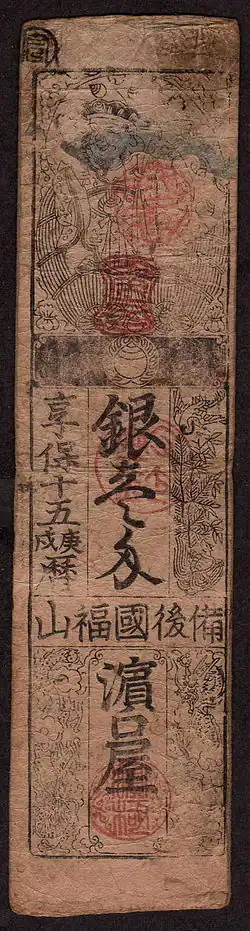 銀壱匁
享保十五
庚戌暦
備後國福山
濵口屋